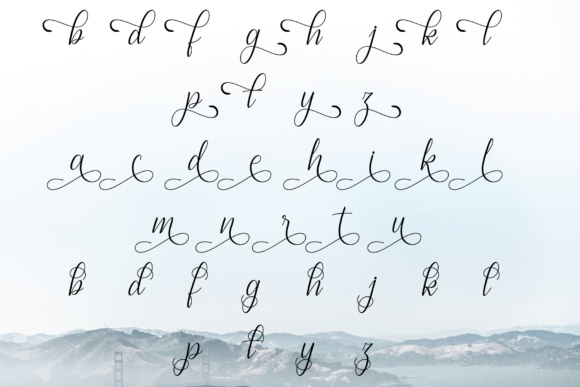 b d f g h j k l
p t y z
a c d e h i k l
m n r t u
b d f g h j k l
p t y z